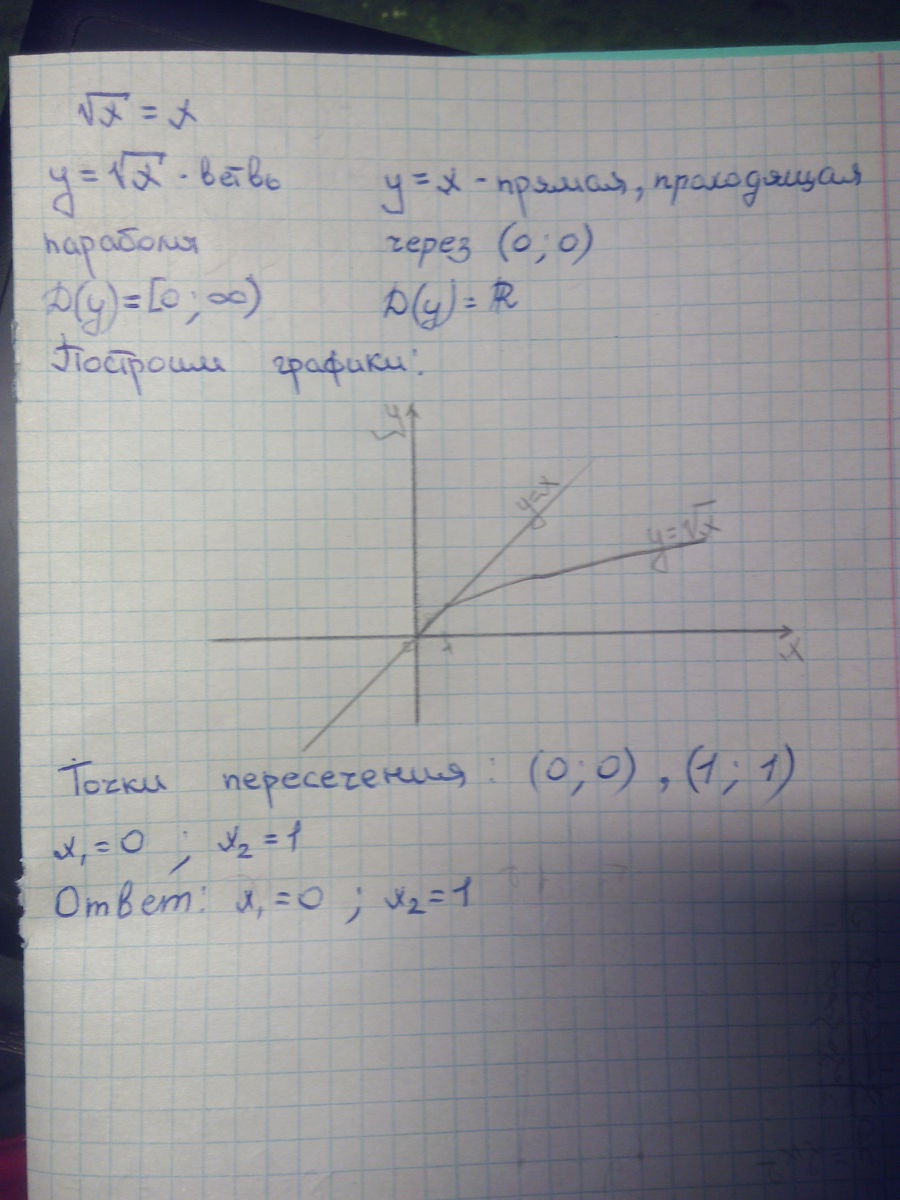 √x = x
y = √x - ветвь
параболы
D(y) = [0; ∞)
y = x - прямая, проходящая
через (0; 0)
D(y) = R
Построим графики:
y
y=x
y=√x
0
1
x
Точки пересечения: (0; 0), (1; 1)
x₁ = 0 ; x₂ = 1
Ответ: x₁ = 0 ; x₂ = 1